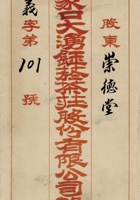 股東 崇德堂
家口大湧茶莊股份有限公司
義字第 101 號